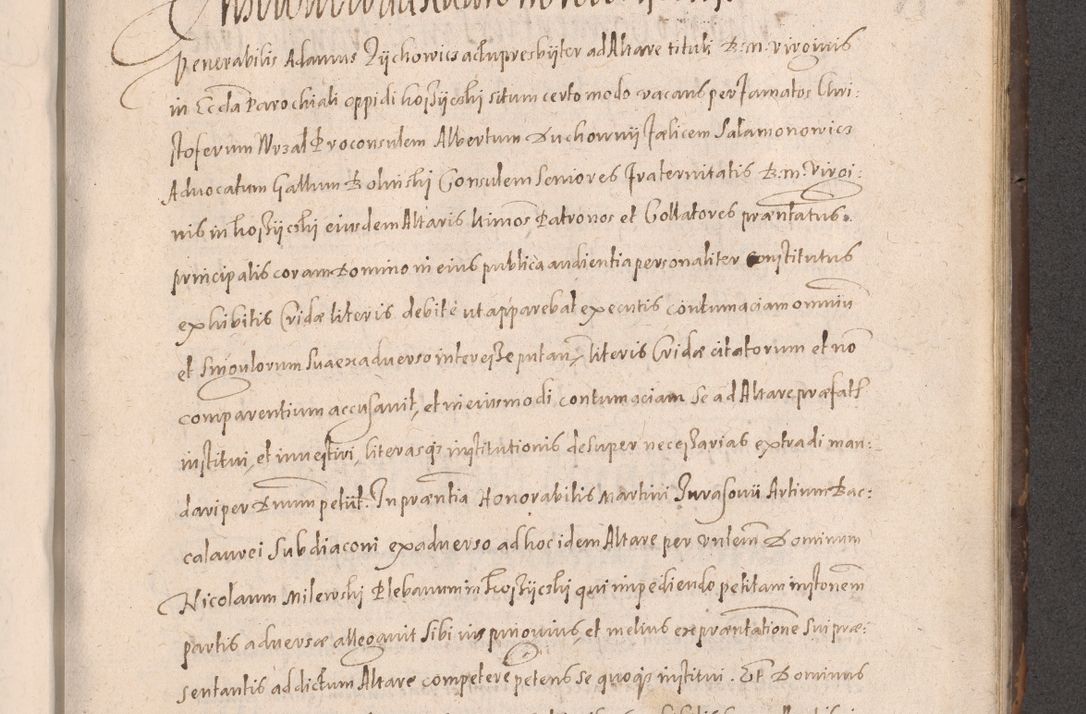 Venerabilis Adamus Zychowicz actu presbyter ad Altare tituli B. M. Virginis
in Eccl͠a Parochiali oppidi Koszyczki situm certo modo vacans per famatos Chri:
stoferum Wrzal Proconsulem Albertum Duchownij Fælicem Salamonowicz
Advocatum Gallum Bolinski Consulem Seniores fraternitatis B: M. Virgi:
nis in Koszyczki eiusdem Altaris ltimos Patronos et Collatores præntatus.
principalis coram Domino in eius publica audientia personaliter constitutus
exhibitis Cridæ literis debitè ut apparebat executis contumaciam omniũ
et singulorum sua ex adverso interesse putan̄. literis Cridæ citatorum et nõ
comparentium accusavit, et in eiusmodi contumaciam se ad Altare præfat̃
institui, et investiri, literasq́ institutionis desuper necessarias extradi man:
dari per Dnum petiit. In præntia Honorabilis Martini Jurasovii Artium Bac:
calaurei Subdiaconi ex adverso ad hoc idem Altare per Vntem Dominum
Nicolaum Milewski Plebanum in Koszyczki qui impediendo petitam instonem
partis adversæ allegavit sibi ius pinguius, et melius ex præntatione sui præ:
sentantis ad dictum Altare competere petens se quoq́ institui. Et Dominus